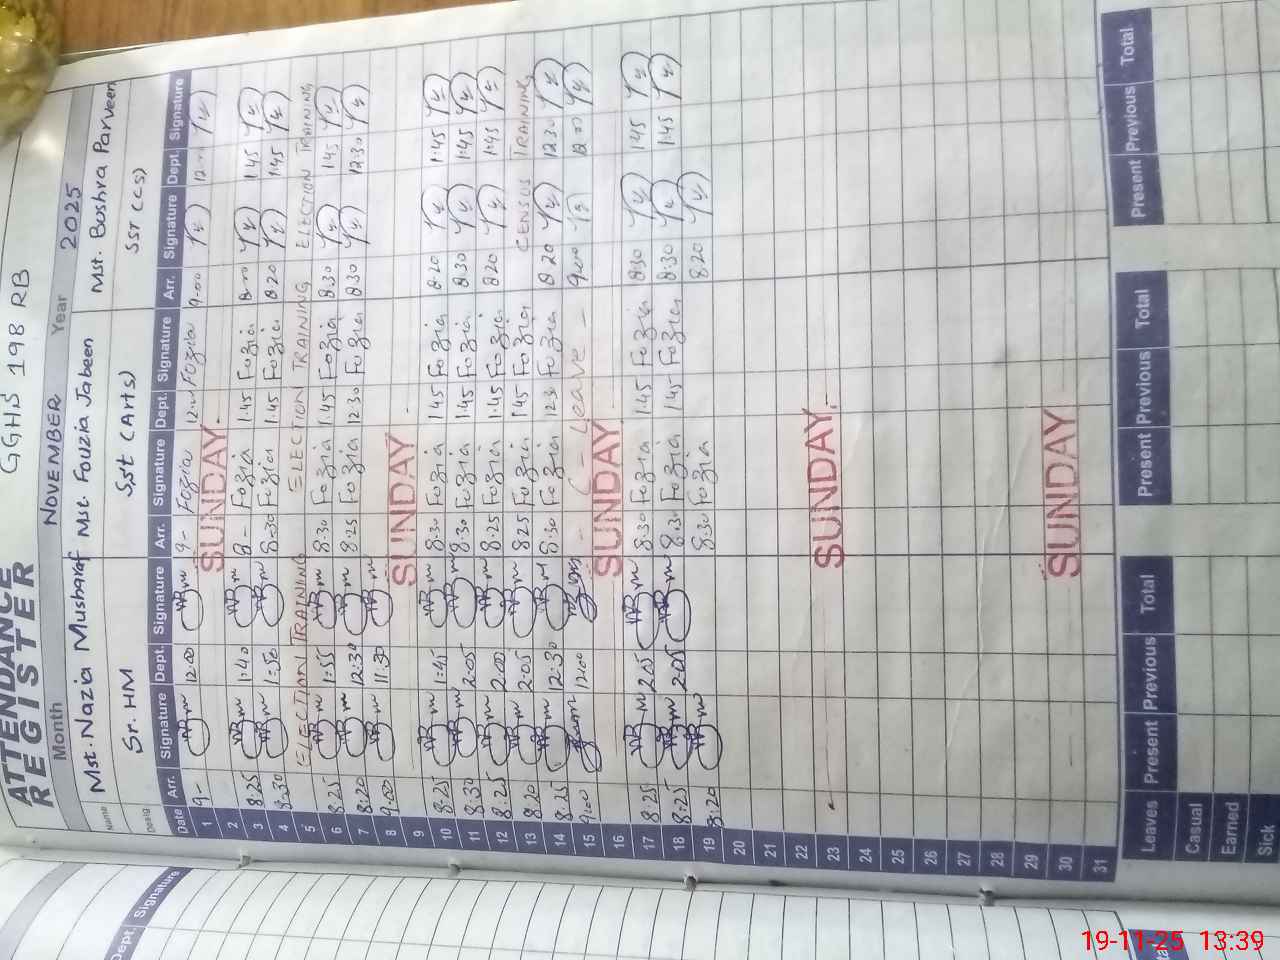 GGHS 198 RB
ATTENDANCE
REGISTER
Month NOVEMBER Year 2025
Name Mst. Nazia Musharaf Mst. Fouzia Jabeen Mst. Bushra Parveen
Desig Sr. HM Sst (Arts) SST (CS)
Date Arr. Signature Dept. Signature Arr. Signature Dept. Signature Arr. Signature Dept. Signature
1 9- 12:00 9- Fozia Fozia 9-00
2 SUNDAY
3 8:25 1:40 8- Fozia 1:45 Fozia 8-00 1:45
4 8:30 1:50 8:30 Fozia 1:45 Fozia 8:20 1:45
5 ELECTION TRAINING ELECTION TRAINING ELECTION TRAINING
6 8:25 1:55 8:30 Fozia 1:45 Fozia 8:30 1:45
7 8:20 12:30 8:25 Fozia 12:30 Fozia 8:30 12:30
8 9:00 11:30
9 SUNDAY
10 8:25 1:45 8:30 Fozia 1:45 Fozia 8:20 1:45
11 8:30 2:05 8:30 Fozia 1:45 Fozia 8:30 1:45
12 8:25 2:00 8:25 Fozia 1:45 Fozia 8:20 1:45
13 8:20 2:05 8:25 Fozia 1:45 Fozia CENSUS TRAINING
14 8:25 12:30 8:30 Fozia 12:30 Fozia 8:20 12:30
15 9:00 12:00 - C - Leave - 9:00 12:00
16 SUNDAY
17 8:25 2:05 8:30 Fozia 1:45 Fozia 8:30 1:45
18 8:25 2:05 8:30 Fozia 1:45 Fozia 8:30 1:45
19 8:20 8:30 Fozia 8:20
20
21
22
23 SUNDAY
24
25
26
27
28
29
30 SUNDAY
31
Leaves Present Previous Total Present Previous Total Present Previous Total
Casual
Earned
Sick
Dept. Signature
19-11-25 13:39